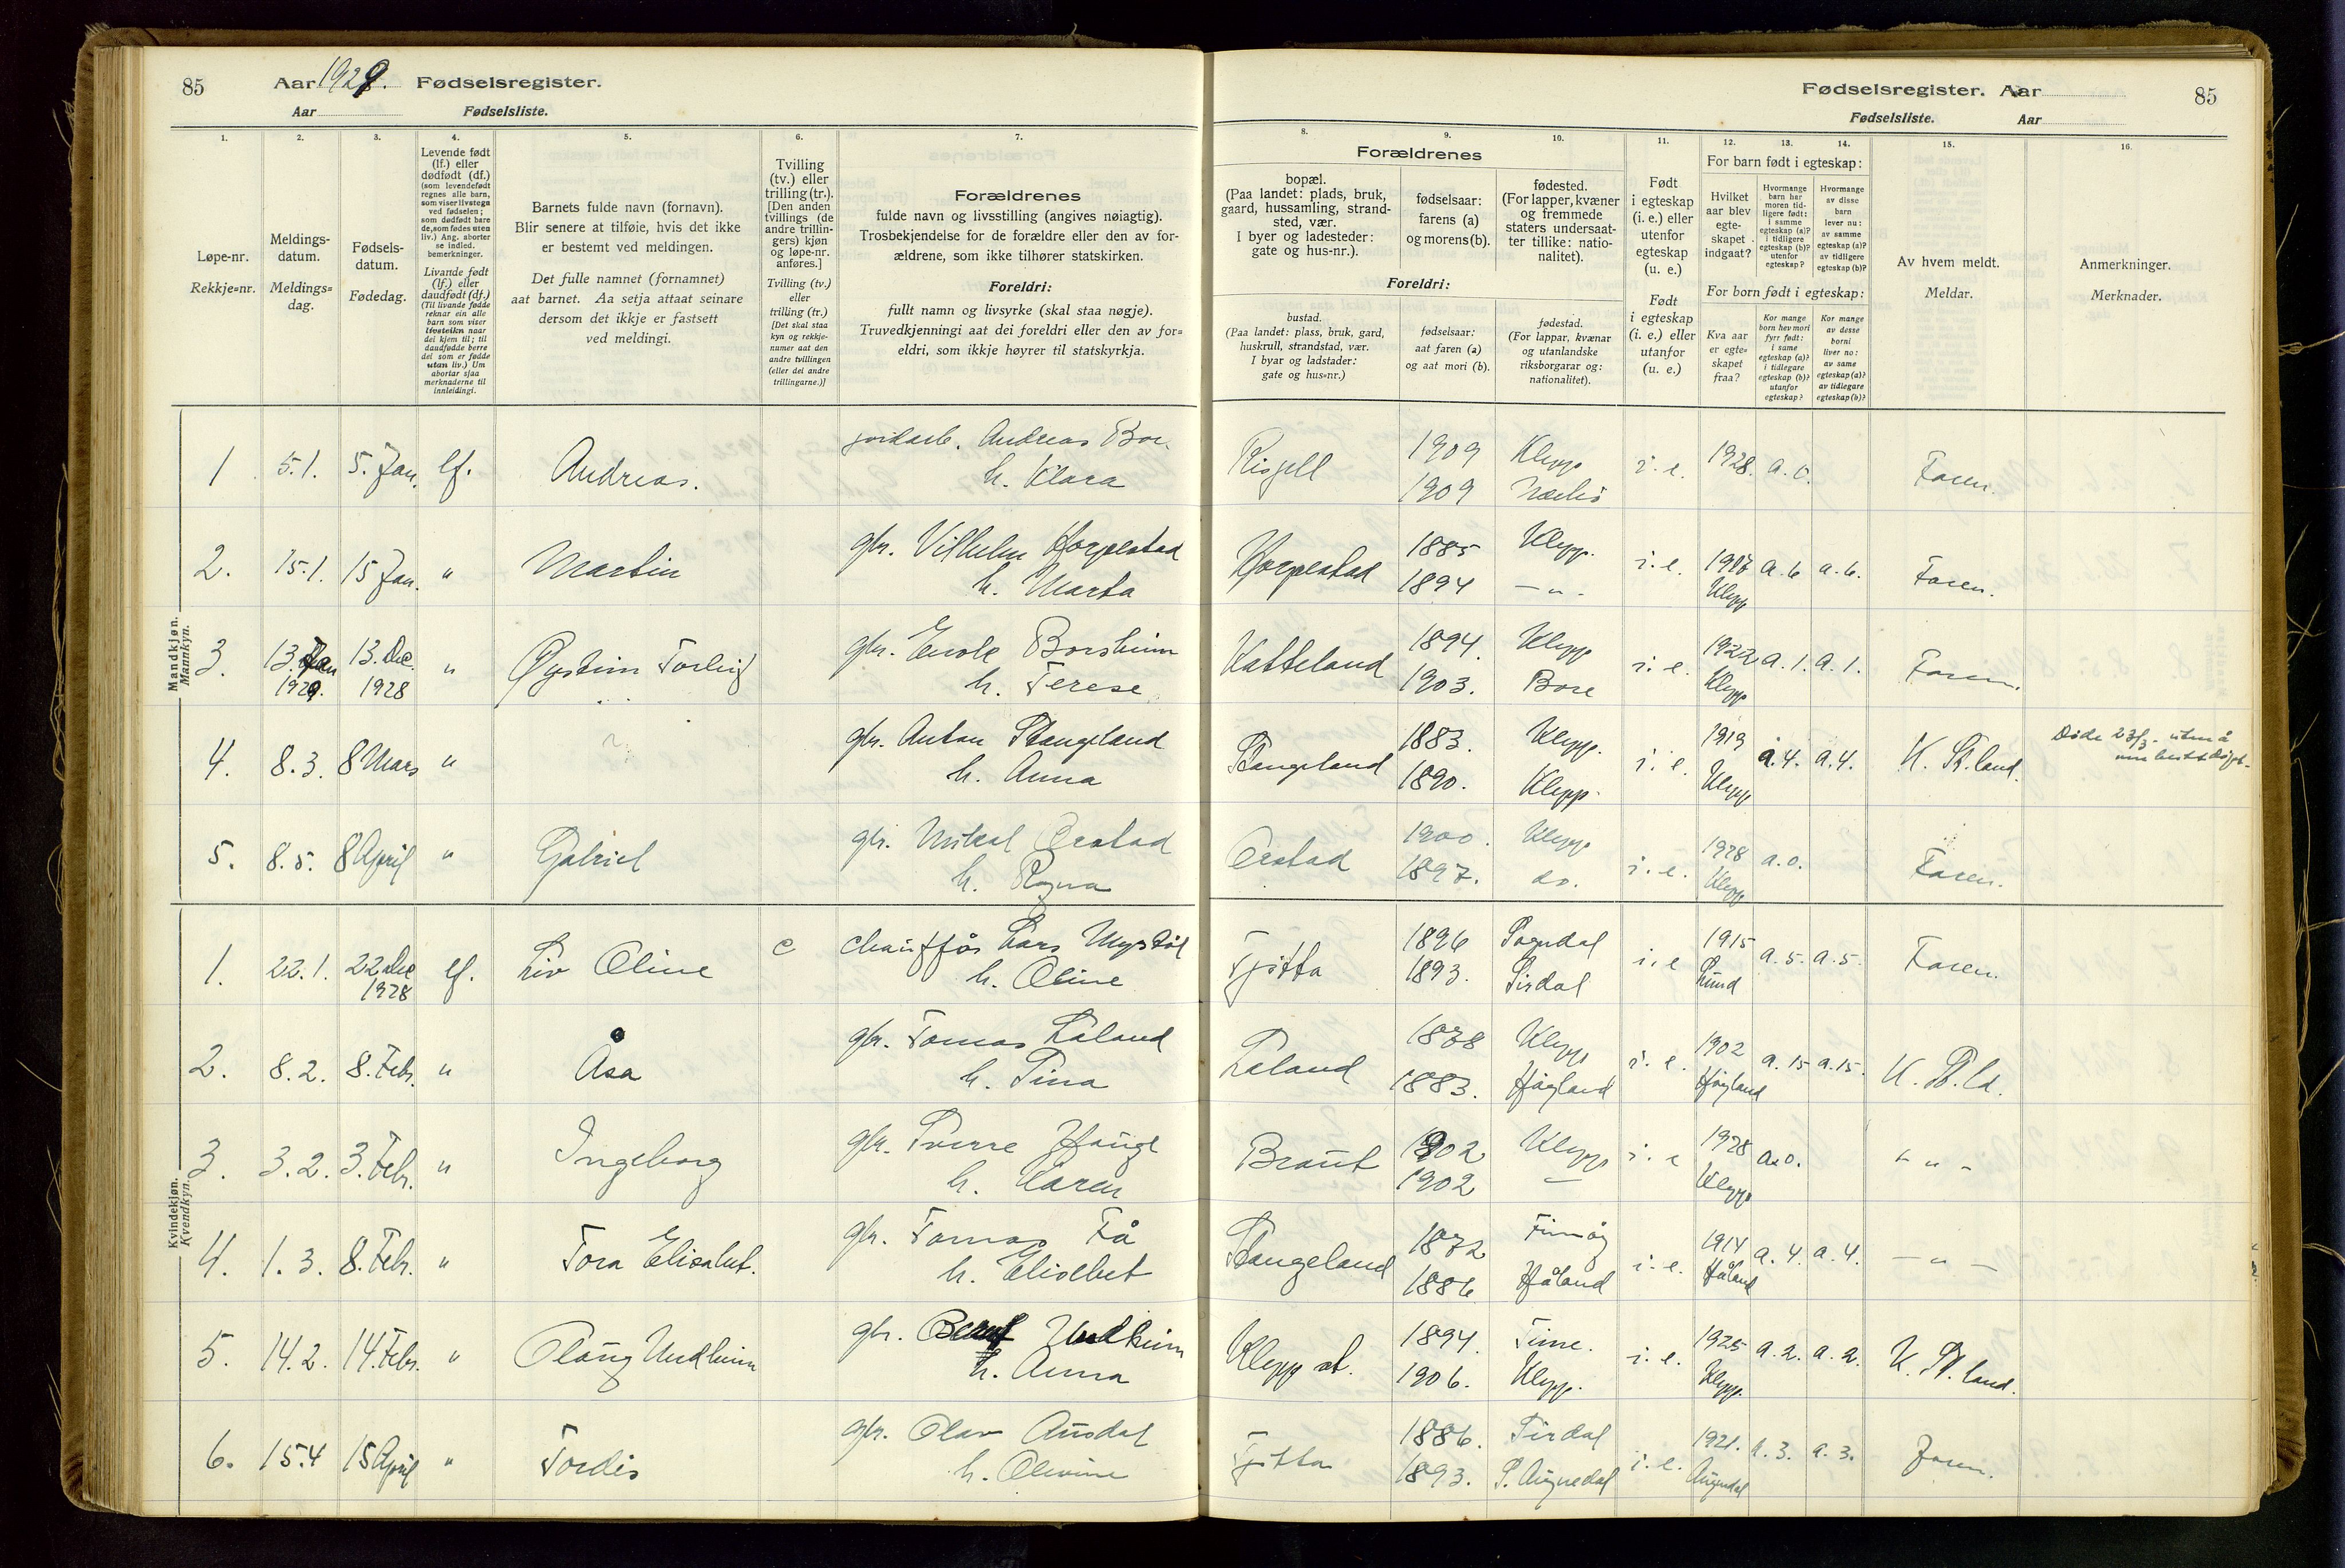 85
Aar 1929. Fødselsregister.
Aar Fødselsliste.
Fødselsregister. Aar
85
Fødselsliste. Aar
1.
2.
3.
4.
5.
6.
7.
8.
9.
10.
11.
12.
13.
14.
15.
16.
Løpe-nr.
Rekkje=nr.
Meldings-
datum.
Meldings=
dag.
Fødsels-
datum.
Fødedag.
Levende født
(lf.) eller
dødfødt (df.)
(som levendefødt
regnes alle barn,
som viser livstegn
ved fødselen;
som dødfødt bare
de, som fødes uten
liv.) Ang. aborter
se indled.
bemerkninger.
Livande født
(lf.) eller
daudfødt (df.)
(Til livande fødde
reknar ein alle
barn som viser
livsteikn naar
dei kjem til; til
daudfødde berre
dei som er fødde
utan liv.) Um
abortar sjaa
merknaderne til
innleidingi.
Barnets fulde navn (fornavn).
Blir senere at tilføie, hvis det ikke
er bestemt ved meldingen.
Det fulle namnet (fornamnet)
aat barnet. Aa setja attaat seinare
dersom det ikkje er fastsett
ved meldingi.
Tvilling
(tv.) eller
trilling (tr.).
[Den anden
tvillings (de
andre trillin-
gers) kjøn
og løpe-nr.
anføres.]
Tvilling (tv.)
eller
trilling (tr.)
[Det skal staa
kyn og rekkje-
numer aat den
andre tvillingen
(eller dei andre
trillingarne.)]
Forældrenes
fulde navn og livsstilling (angives nøiagtig).
Trosbekjendelse for de forældre eller den av for-
ældrene, som ikke tilhører statskirken.
Foreldri:
fullt namn og livsyrke (skal staa nøgje).
Truvedkjenningi aat dei foreldri eller den av for=
eldri, som ikkje høyrer til statskyrkja.
Forældrenes
bopæl.
(Paa landet: plads, bruk,
gaard, hussamling, strand-
sted, vær.
I byer og ladesteder:
gate og hus-nr.).
fødselsaar:
farens (a)
og morens (b).
fødested.
(For lapper, kvæner
og fremmede
staters undersaat-
ter tillike: natio-
nalitet).
Foreldri:
bustad.
(Paa landet: plass, bruk, gard,
huskrull, strandstad, vær.
I byar og ladstader:
gate og hus=nr.)
fødselsaar:
aat faren (a)
og aat mori (b).
fødestad.
(For lappar, kvænar
og utanlandske
riksborgarar og:
nationalitet).
Født
i egteskap
(i. e.) eller
utenfor
egteskap
(u. e.)
Født
i egteskap
(i. e.) eller
utanfor
(u. e.)
For barn født i egteskap:
Hvilket
aar blev
egte-
skapet
indgaat?
Hvormange
barn har
moren tid-
ligere født:
i samme
egteskap (a)?
i tidligere
egteskap (b)?
utenfor
egteskap?
Hvormange
av disse
barn
lever nu:
av samme
egteskap (a)?
av tidligere
egteskap (b)?
For born født i egteskap:
Kva aar
er egte=
skapet
fraa?
Kor mange
born hev mori
fyrr født:
i same
egteskap (a)?
i tidlegare
egteskap (b)?
utanfor
egteskap?
Kor mange
av desse
borni
liver no:
av same
egteskap (a)?
av tidlegare
egteskap (b)?
Av hvem meldt.
Meldar.
Anmerkninger.
Merknader.
Mandkjøn.
Mannkyn.
1 5.1. 5. Jan. lf. Andreas. Andreas Bore 1909 Klepp i. e. 1928. a. 0. Faren.
h. Klara 1909 Nærbø
2. 15.1. 15 Jan. " Martin gbr. Vilhelm Horpestad Horpestad 1885 Klepp. i. e. 1917 a. 6 a. 6. Faren.
h. Marta 1894 — " - Klepp
3. 13. Jan 13. Dec. " Øystein Torleif gbr. Enok Borsheim Katteland 1894. Klepp i. e. 1922 a. 1. a. 1. Faren.
1929. 1928 h. Terese 1903. Bore Klepp
4. 8.3. 8 Mars " gbr. Anton Stangeland Stangeland 1883. Klepp. i. e. 1919 a. 4. a. 4. K. St.land. Døde 23/3 - uten å
h. Anna 1890. Klepp. Klepp døpt.
5. 8.5. 8 April " Gabriel gbr. Mikal Orstad Orstad 1900. Klepp i. e. 1928 a. 0. Faren.
h. Ragna 1897. do. Klepp
Kvindekjøn.
Kvendkyn.
1. 22.1. 22 Dec lf. Liv Oline chauffør Lars Mystøl Tjøtta 1896 Sogndal i. e 1915 a. 5. a. 5. Faren.
1928 h. Oline 1893. Sirdal Lund
2. 8.2. 8. Febr. " Åsa gbr. Tomas Laland Laland 1878 Klepp i. e. 1902 a. 15 a. 15. K. St.ld.
h. Sina 1883. Høyland Høyland
3. 3.2. 3. Febr. " Ingeborg gbr. Sverre Hauge Braut 1902 Klepp i. e 1928 a. 0. - " -
h. Karen 1902 — Klepp
4. 1.3. 8. Febr. " Tora Elisabet. gbr. Tomas Stangeland 1872 Finnøy i. e. 1914 a. 4. a. 4. — " —
h. Elisebet 1886 Håland Håland
5. 14.2. 14. Febr. " Olaug Undheim gbr. Undheim Klepp st. 1894. Time. i. e. 1925 a. 2. a. 2. K. St.land.
h. Anna 1906. Klepp. Klepp.
6. 15.4 15 April " Tordis gbr. Olav Ausdal Tjøtta 1886. Sirdal i. e. 1921. a. 3. a. 3. Faren.
h. Olivine 1893.